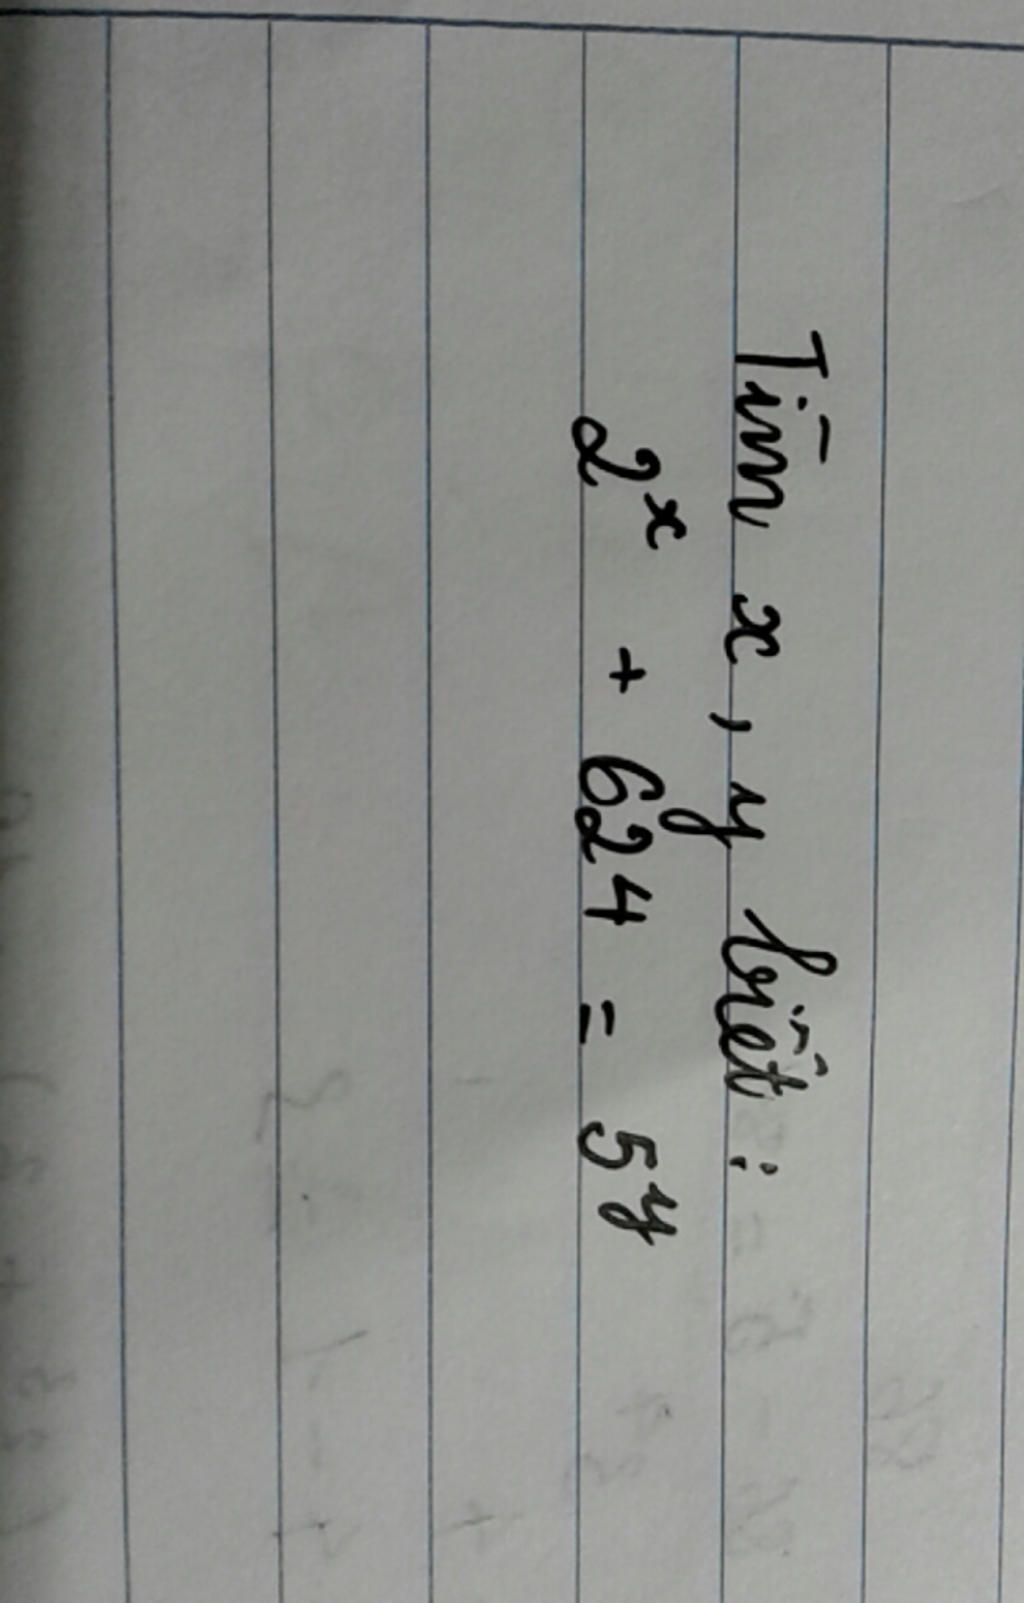 Tìm x, y biết :
2ˣ + 624 = 5ʸ